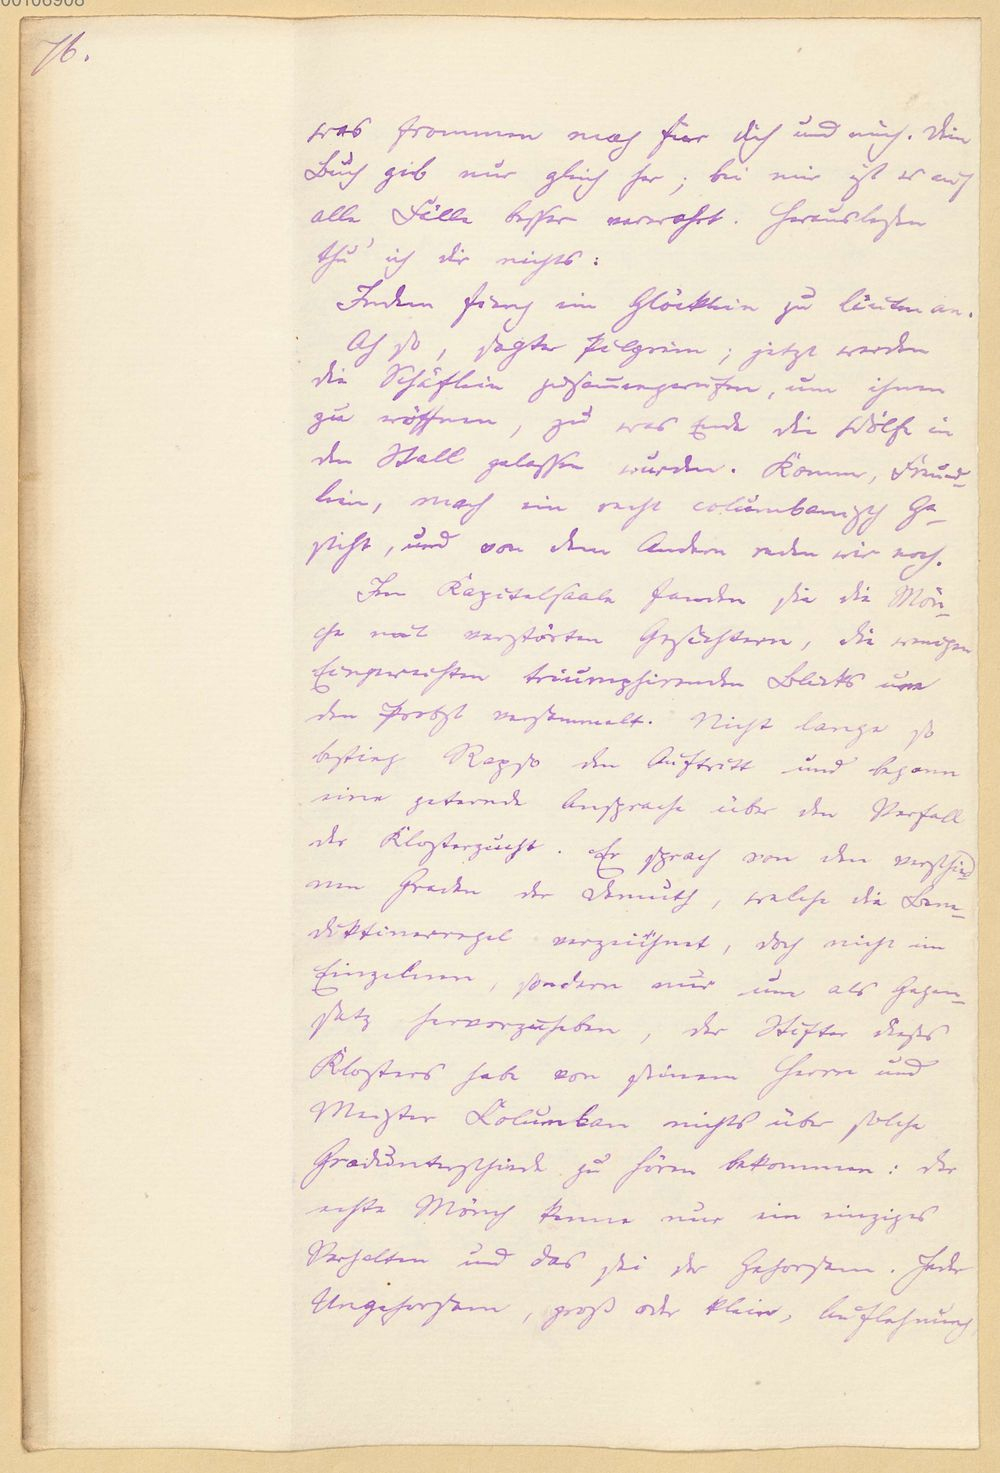 00106908
76.
was frommen mag für dich und mich. Dein
Buch gib nur gleich her; bei mir ist es auf
alle Fälle besser verwahrt. Herauslesen
thu' ich dir nichts:
Indem fieng ein Glöcklein zu läuten an.
Ach so, sagte Pilgrim; jetzt werden
die Schäflein zusam̅engerufen, um ihnen
zu eröffnen, zu was Ende die Wölfe in
den Stall gelassen wurden. Komm, Freund-
lein, mach ein recht columbanisch Ge-
sicht, und von dem Andern reden wir noch.
Im Kapitelsaale fanden sie die Mön-
che mit verstörten Gesichtern, die wenigen
Eingeweihten triumphirenden Blicks um
den Probst versammelt. Nicht lange so
bestieg Rapso den Auftritt und begann
eine geternde Ansprache über den Verfall
der Klosterzucht. Er sprach von den verschied
nen Graden der Demuth, welche die Bene-
diktinerregel verzeichnet, doch nicht im
Einzelnen, sondern nur um als Gegen-
satz hervorzuheben, der Stifter dieses
Klosters habe von seinem Herrn und
Meister Kolumban nichts über solche
Gradunterschiede zu hören bekommen: der
echte Mönch kenne nur ein einziges
Verhalten und das sei der Gehorsam. Jeder
Ungehorsam, groß oder klein, Auflehnung